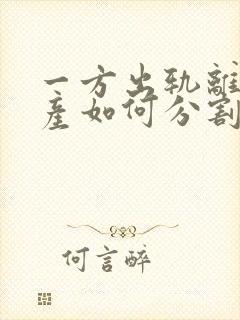 一方出轨離
産如何分割
何言醉